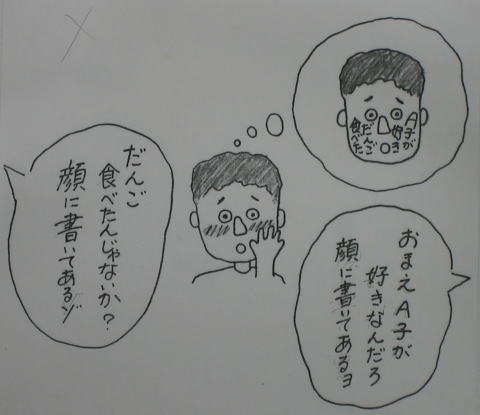 A子が
好き
だんご
食べた
おまえA子が
好きなんだろ
顔に書いてあるヨ
だんご
食べたんじゃないか?
顔に書いてあるゾ